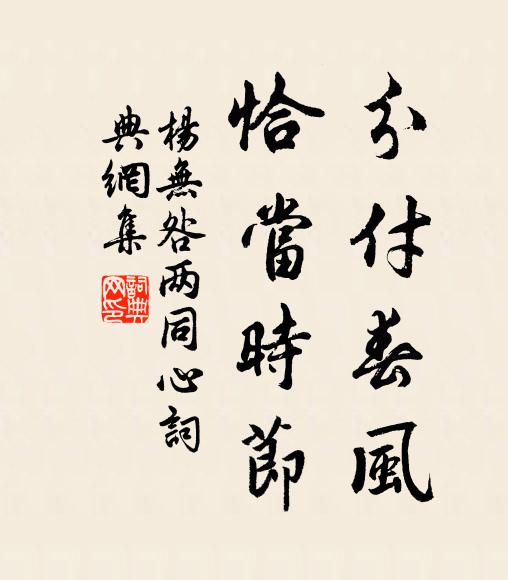 分付春風
恰當時節
楊無咎两同心詞
典網集
詞典网印